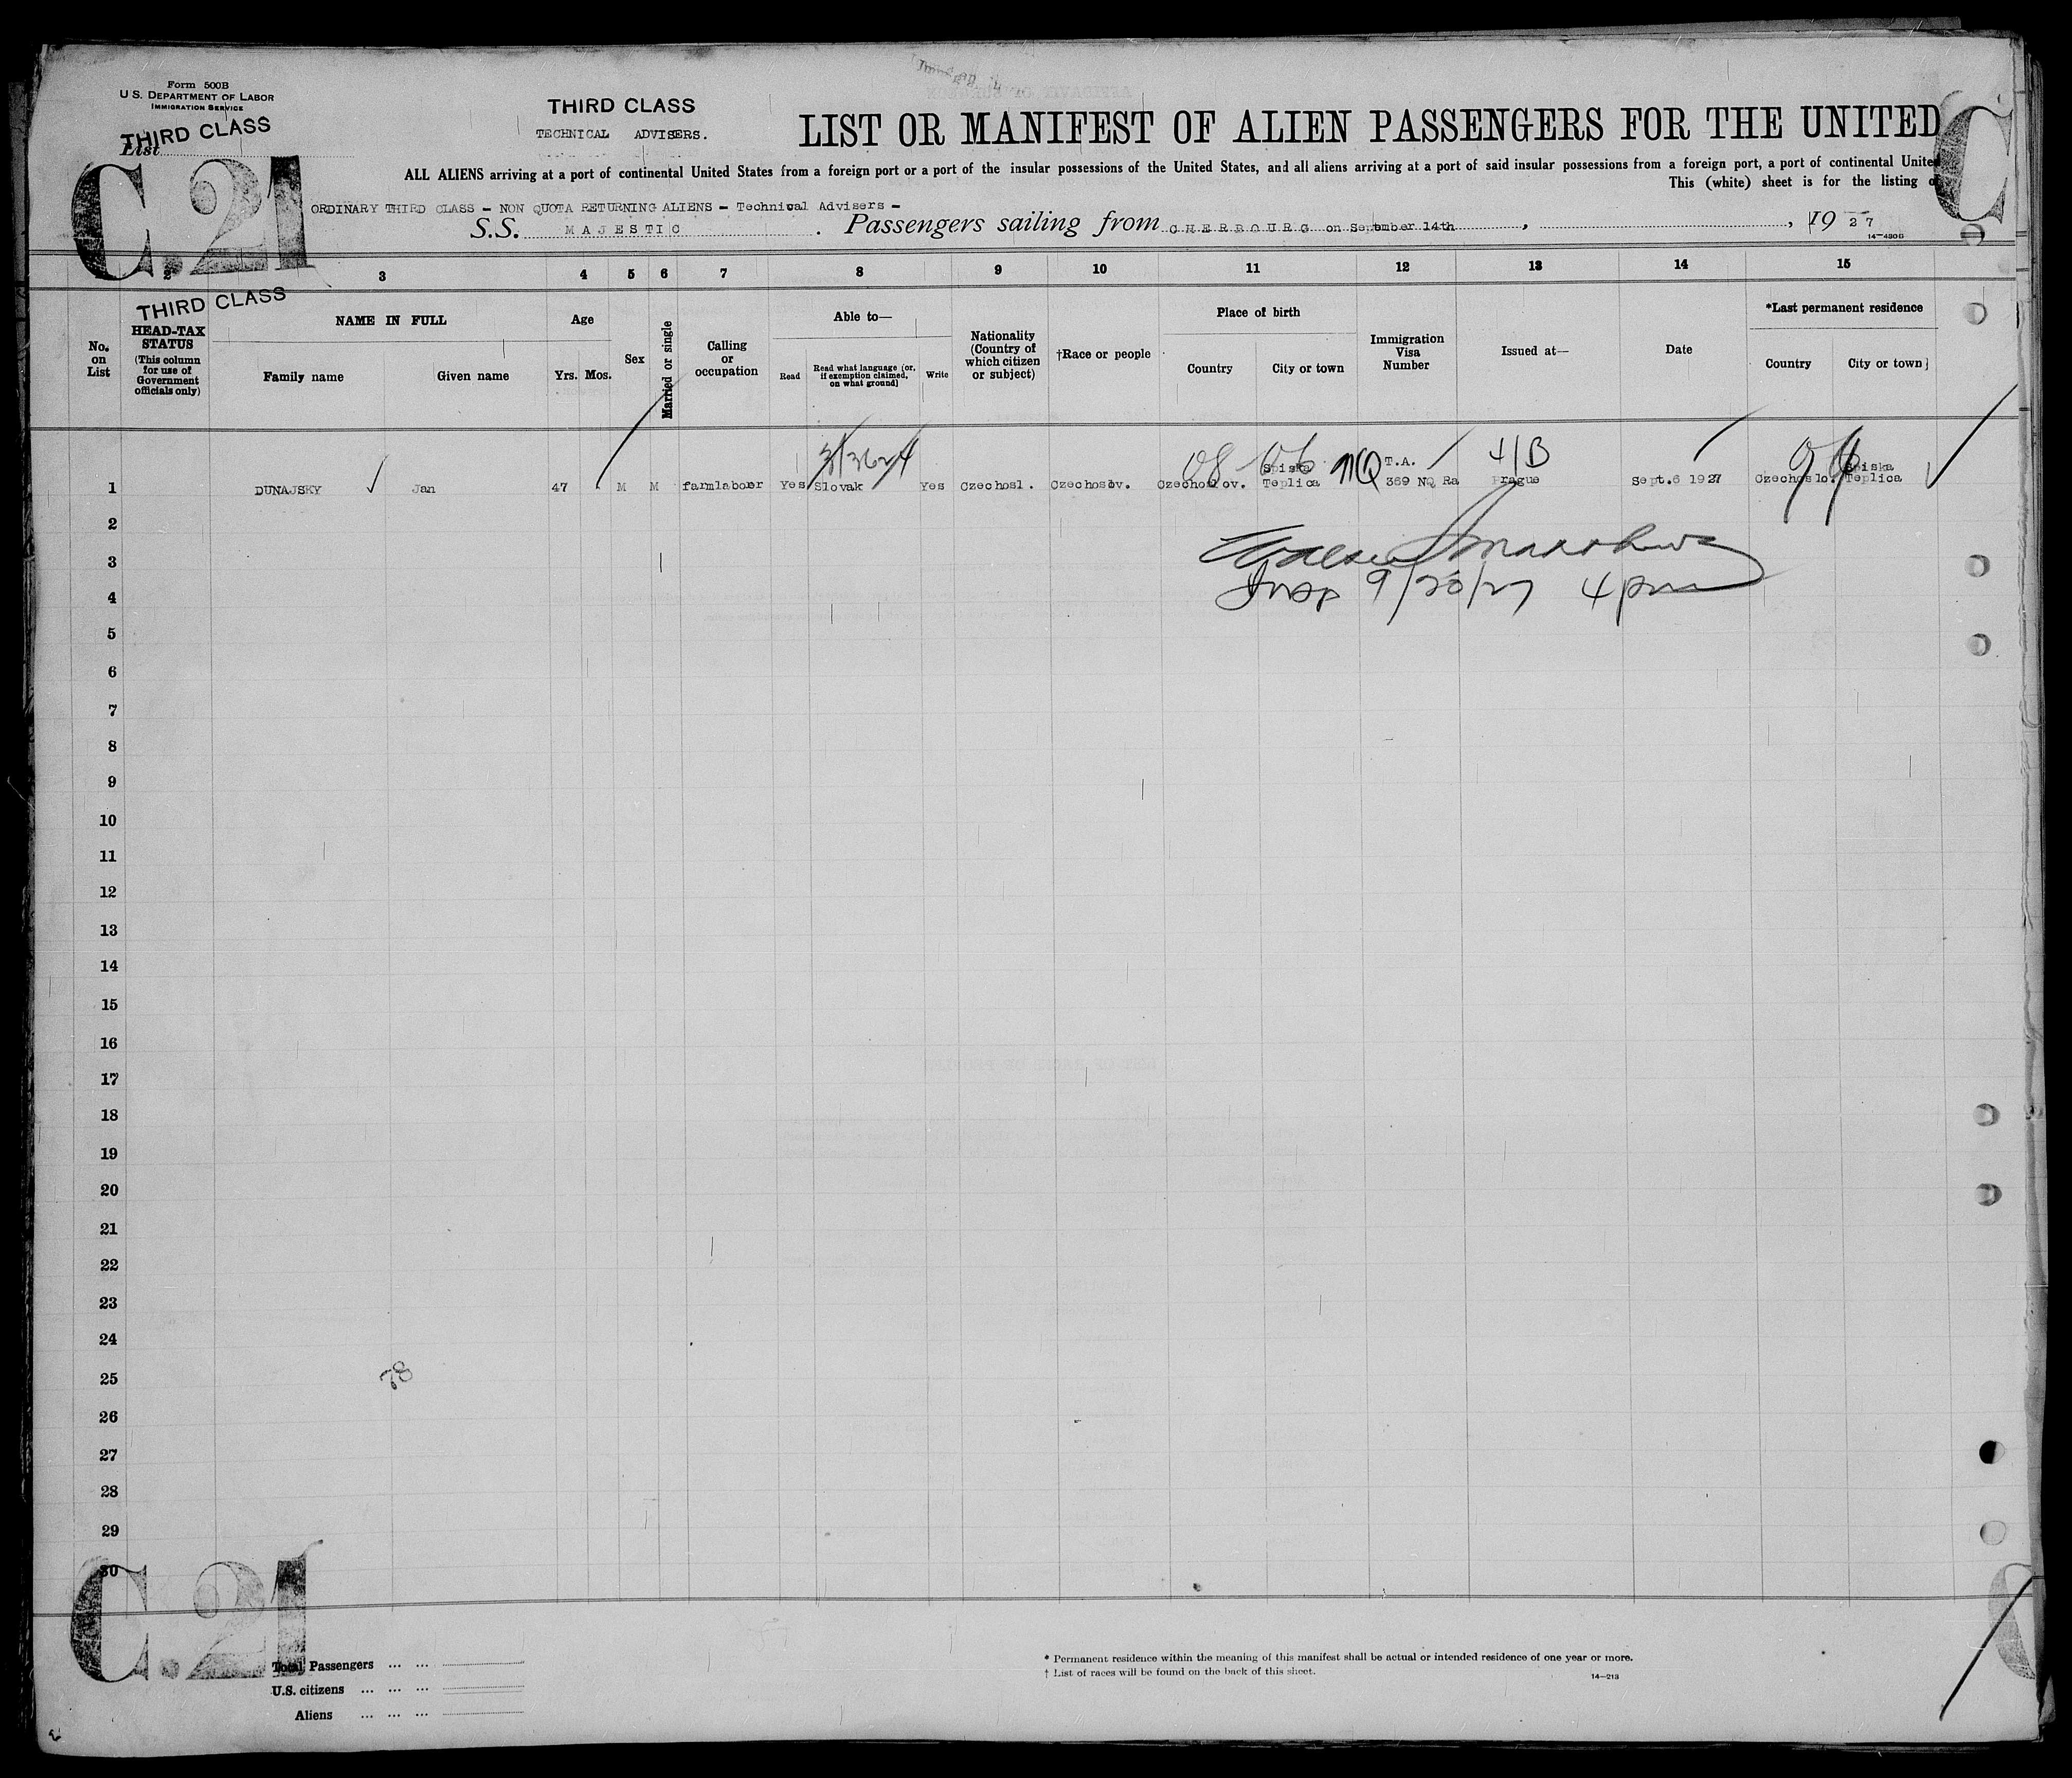 Form 500B
U.S. DEPARTMENT OF LABOR
IMMIGRATION SERVICE
THIRD CLASS
List
C.21
THIRD CLASS
TECHNICAL ADVISERS.
LIST OR MANIFEST OF ALIEN PASSENGERS FOR THE UNITED
C
ALL ALIENS arriving at a port of continental United States from a foreign port or a port of the insular possessions of the United States, and all aliens arriving at a port of said insular possessions from a foreign port, a port of continental United
This (white) sheet is for the listing o
ORDINARY THIRD CLASS - NON QUOTA RETURNING ALIENS - Technical Advisers -
S.S. MAJESTIC. Passengers sailing from CHERBOURG on September 14th, , 1927
14-430B
2 3 4 5 6 7 8 9 10 11 12 13 14 15
THIRD CLASS
No. on List
HEAD-TAX STATUS
(This column for use of Government officials only)
NAME IN FULL
Family name
Given name
Age
Yrs. Mos.
Sex
Married or single
Calling or occupation
Able to—
Read
Read what language (or, if exemption claimed, on what ground)
Write
Nationality (Country of which citizen or subject)
†Race or people
Place of birth
Country
City or town
Immigration Visa Number
Issued at—
Date
*Last permanent residence
Country
City or town
1 DUNAJSKY Jan 47 M M farmlaborer Yes Slovak Yes Czechosl. Czechoslov. Czechoslov. Spiska Teplica NQ T.A. 369 NQ Ra 4/B Prague Sept.6 1927 Czechoslo. Spiska Teplica
2
3
Insp 9/20/27 4 pm
4
5
6
7
8
9
10
11
12
13
14
15
16
17
18
19
20
21
22
23
24
25
78
26
27
28
29
30
C.21
C
Total Passengers ... ...
U.S. citizens ... ... ...
Aliens ... ... ...
* Permanent residence within the meaning of this manifest shall be actual or intended residence of one year or more.
† List of races will be found on the back of this sheet.
14-213